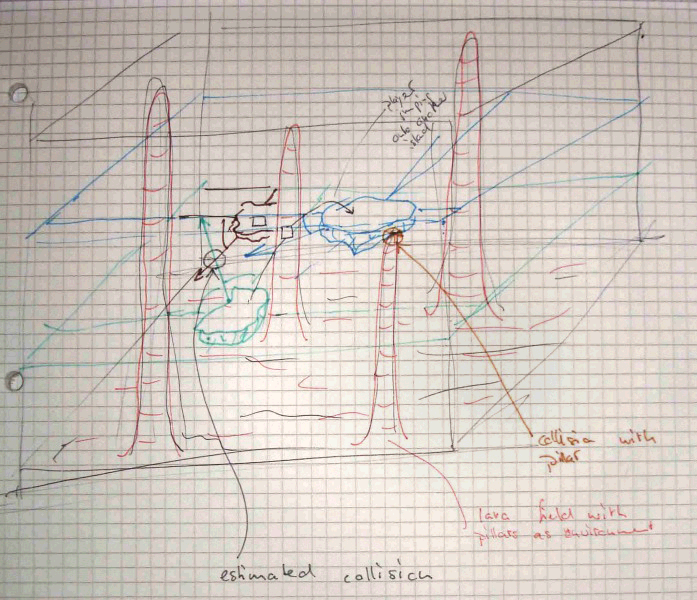 player
jumping
onto another
slab
collision with
pillar
lava field with
pillars as environment
estimated collision